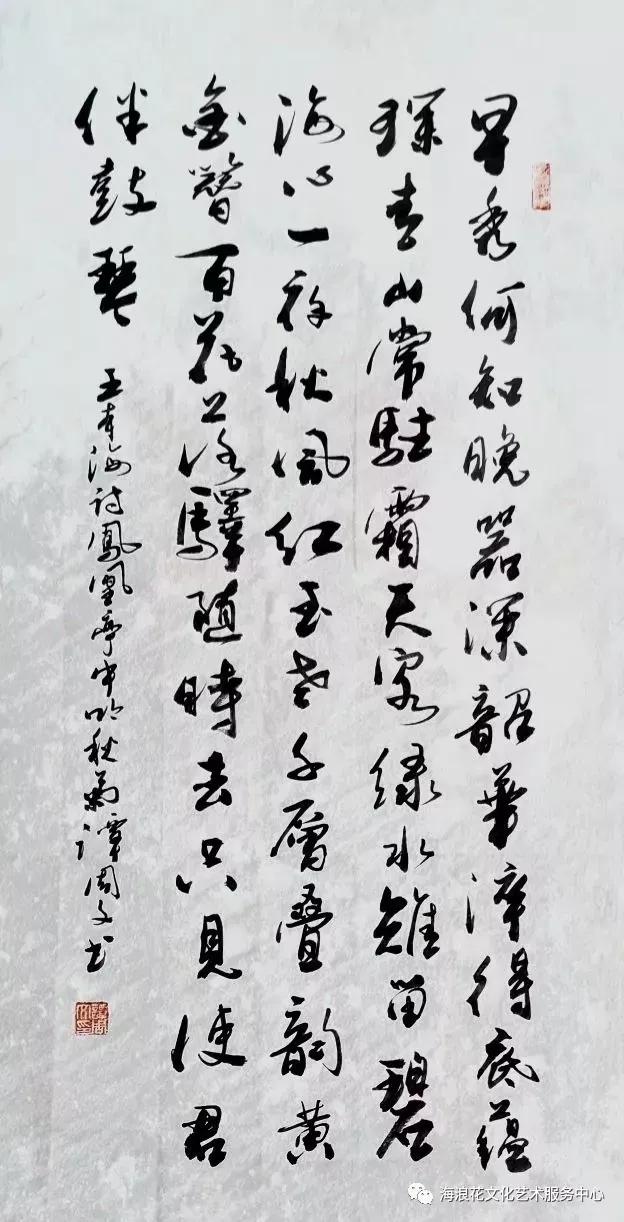 早秀何知晚器深韶華淬得底蘊
琛青山常駐霜天客綠水難留碧
海心一夜秋風紅玉老千層疊韻黃
金簪百花落驛隨時去只見使君
伴鼓琴
王本海詩鳳凰亭中吟秋菊譚周文书
海浪花文化艺术服务中心